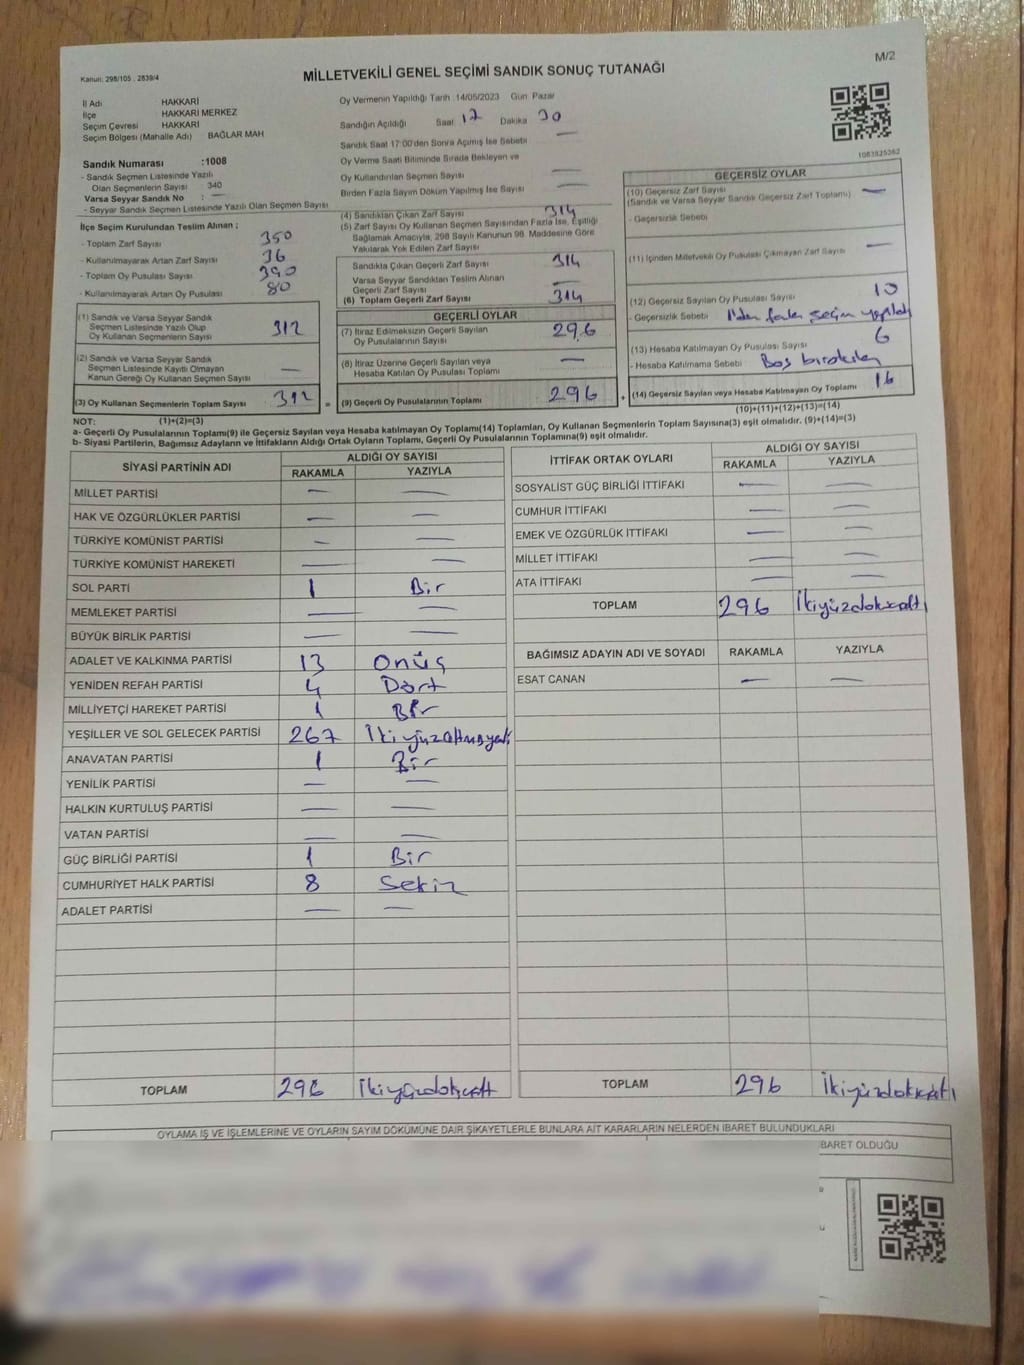 Kanun: 298/105 , 2839/4
M/2
MİLLETVEKİLİ GENEL SEÇİMİ SANDIK SONUÇ TUTANAĞI
İl Adı HAKKARİ
İlçe HAKKARİ MERKEZ
Seçim Çevresi HAKKARİ
Seçim Bölgesi (Mahalle Adı) BAĞLAR MAH
Sandık Numarası :1008
- Sandık Seçmen Listesinde Yazılı
Olan Seçmenlerin Sayısı 340
Varsa Seyyar Sandık No : —
- Seyyar Sandık Seçmen Listesinde Yazılı Olan Seçmen Sayısı
İlçe Seçim Kurulundan Teslim Alınan ;
- Toplam Zarf Sayısı 350
- Kullanılmayarak Artan Zarf Sayısı 36
- Toplam Oy Pusulası Sayısı 390
- Kullanılmayarak Artan Oy Pusulası 80
(1) Sandık ve Varsa Seyyar Sandık
Seçmen Listesinde Yazılı Olup
Oy Kullanan Seçmenlerin Sayısı 312
(2) Sandık ve Varsa Seyyar Sandık
Seçmen Listesinde Kayıtlı Olmayan
Kanun Gereği Oy Kullanan Seçmen Sayısı —
(3) Oy Kullanan Seçmenlerin Toplam Sayısı 312 =
Oy Vermenin Yapıldığı Tarih 14/05/2023 Gün Pazar
Sandığın Açıldığı Saat 17 Dakika 30
Sandık Saat 17:00'den Sonra Açılmış İse Sebebi —
Oy Verme Saati Bitiminde Sırada Bekleyen ve
Oy Kullandırılan Seçmen Sayısı —
Birden Fazla Sayım Döküm Yapılmış İse Sayısı —
(4) Sandıktan Çıkan Zarf Sayısı 314
(5) Zarf Sayısı Oy Kullanan Seçmen Sayısından Fazla İse, Eşitliği
Sağlamak Amacıyla, 298 Sayılı Kanunun 98. Maddesine Göre
Yakılarak Yok Edilen Zarf Sayısı
Sandıkta Çıkan Geçerli Zarf Sayısı 314
Varsa Seyyar Sandıktan Teslim Alınan
Geçerli Zarf Sayısı —
(6) Toplam Geçerli Zarf Sayısı 314
GEÇERLİ OYLAR
(7) İtiraz Edilmeksizin Geçerli Sayılan
Oy Pusulalarının Sayısı 296
(8) İtiraz Üzerine Geçerli Sayılan veya
Hesaba Katılan Oy Pusulası Toplamı —
(9) Geçerli Oy Pusulalarının Toplamı 296 +
1083825362
GEÇERSİZ OYLAR
(10) Geçersiz Zarf Sayısı —
(Sandık ve Varsa Seyyar Sandık Geçersiz Zarf Toplamı)
- Geçersizlik Sebebi
(11) İçinden Milletvekili Oy Pusulası Çıkmayan Zarf Sayısı —
(12) Geçersiz Sayılan Oy Pusulası Sayısı 10
- Geçersizlik Sebebi 1'den fazla seçim yapıldı
(13) Hesaba Katılmayan Oy Pusulası Sayısı 6
- Hesaba Katılmama Sebebi Boş bırakılan
(14) Geçersiz Sayılan veya Hesaba Katılmayan Oy Toplamı 16
NOT: (1)+(2)=(3) (10)+(11)+(12)+(13)=(14)
a- Geçerli Oy Pusulalarının Toplamı(9) ile Geçersiz Sayılan veya Hesaba katılmayan Oy Toplamı(14) Toplamları, Oy Kullanan Seçmenlerin Toplam Sayısına(3) eşit olmalıdır. (9)+(14)=(3)
b- Siyasi Partilerin, Bağımsız Adayların ve İttifakların Aldığı Ortak Oyların Toplamı, Geçerli Oy Pusulalarının Toplamına(9) eşit olmalıdır.
SİYASİ PARTİNİN ADI ALDIĞI OY SAYISI
RAKAMLA YAZIYLA
MİLLET PARTİSİ — —
HAK VE ÖZGÜRLÜKLER PARTİSİ — —
TÜRKİYE KOMÜNİST PARTİSİ — —
TÜRKİYE KOMÜNİST HAREKETİ — —
SOL PARTİ 1 Bir
MEMLEKET PARTİSİ — —
BÜYÜK BİRLİK PARTİSİ — —
ADALET VE KALKINMA PARTİSİ 13 onüç
YENİDEN REFAH PARTİSİ 4 Dört
MİLLİYETÇİ HAREKET PARTİSİ 1 Bir
YEŞİLLER VE SOL GELECEK PARTİSİ 267 İkiyüzaltmışyedi
ANAVATAN PARTİSİ 1 Bir
YENİLİK PARTİSİ — —
HALKIN KURTULUŞ PARTİSİ — —
VATAN PARTİSİ — —
GÜÇ BİRLİĞİ PARTİSİ 1 Bir
CUMHURİYET HALK PARTİSİ 8 Sekiz
ADALET PARTİSİ — —
TOPLAM 296 İkiyüzdoksanaltı
İTTİFAK ORTAK OYLARI ALDIĞI OY SAYISI
RAKAMLA YAZIYLA
SOSYALİST GÜÇ BİRLİĞİ İTTİFAKI — —
CUMHUR İTTİFAKI — —
EMEK VE ÖZGÜRLÜK İTTİFAKI — —
MİLLET İTTİFAKI — —
ATA İTTİFAKI — —
TOPLAM 296 İkiyüzdoksanaltı
BAĞIMSIZ ADAYIN ADI VE SOYADI RAKAMLA YAZIYLA
ESAT CANAN — —
TOPLAM 296 İkiyüzdoksanaltı
OYLAMA İŞ VE İŞLEMLERİNE VE OYLARIN SAYIM DÖKÜMÜNE DAİR ŞİKAYETLERLE BUNLARA AİT KARARLARIN NELERDEN İBARET BULUNDUKLARI
İBARET OLDUĞU